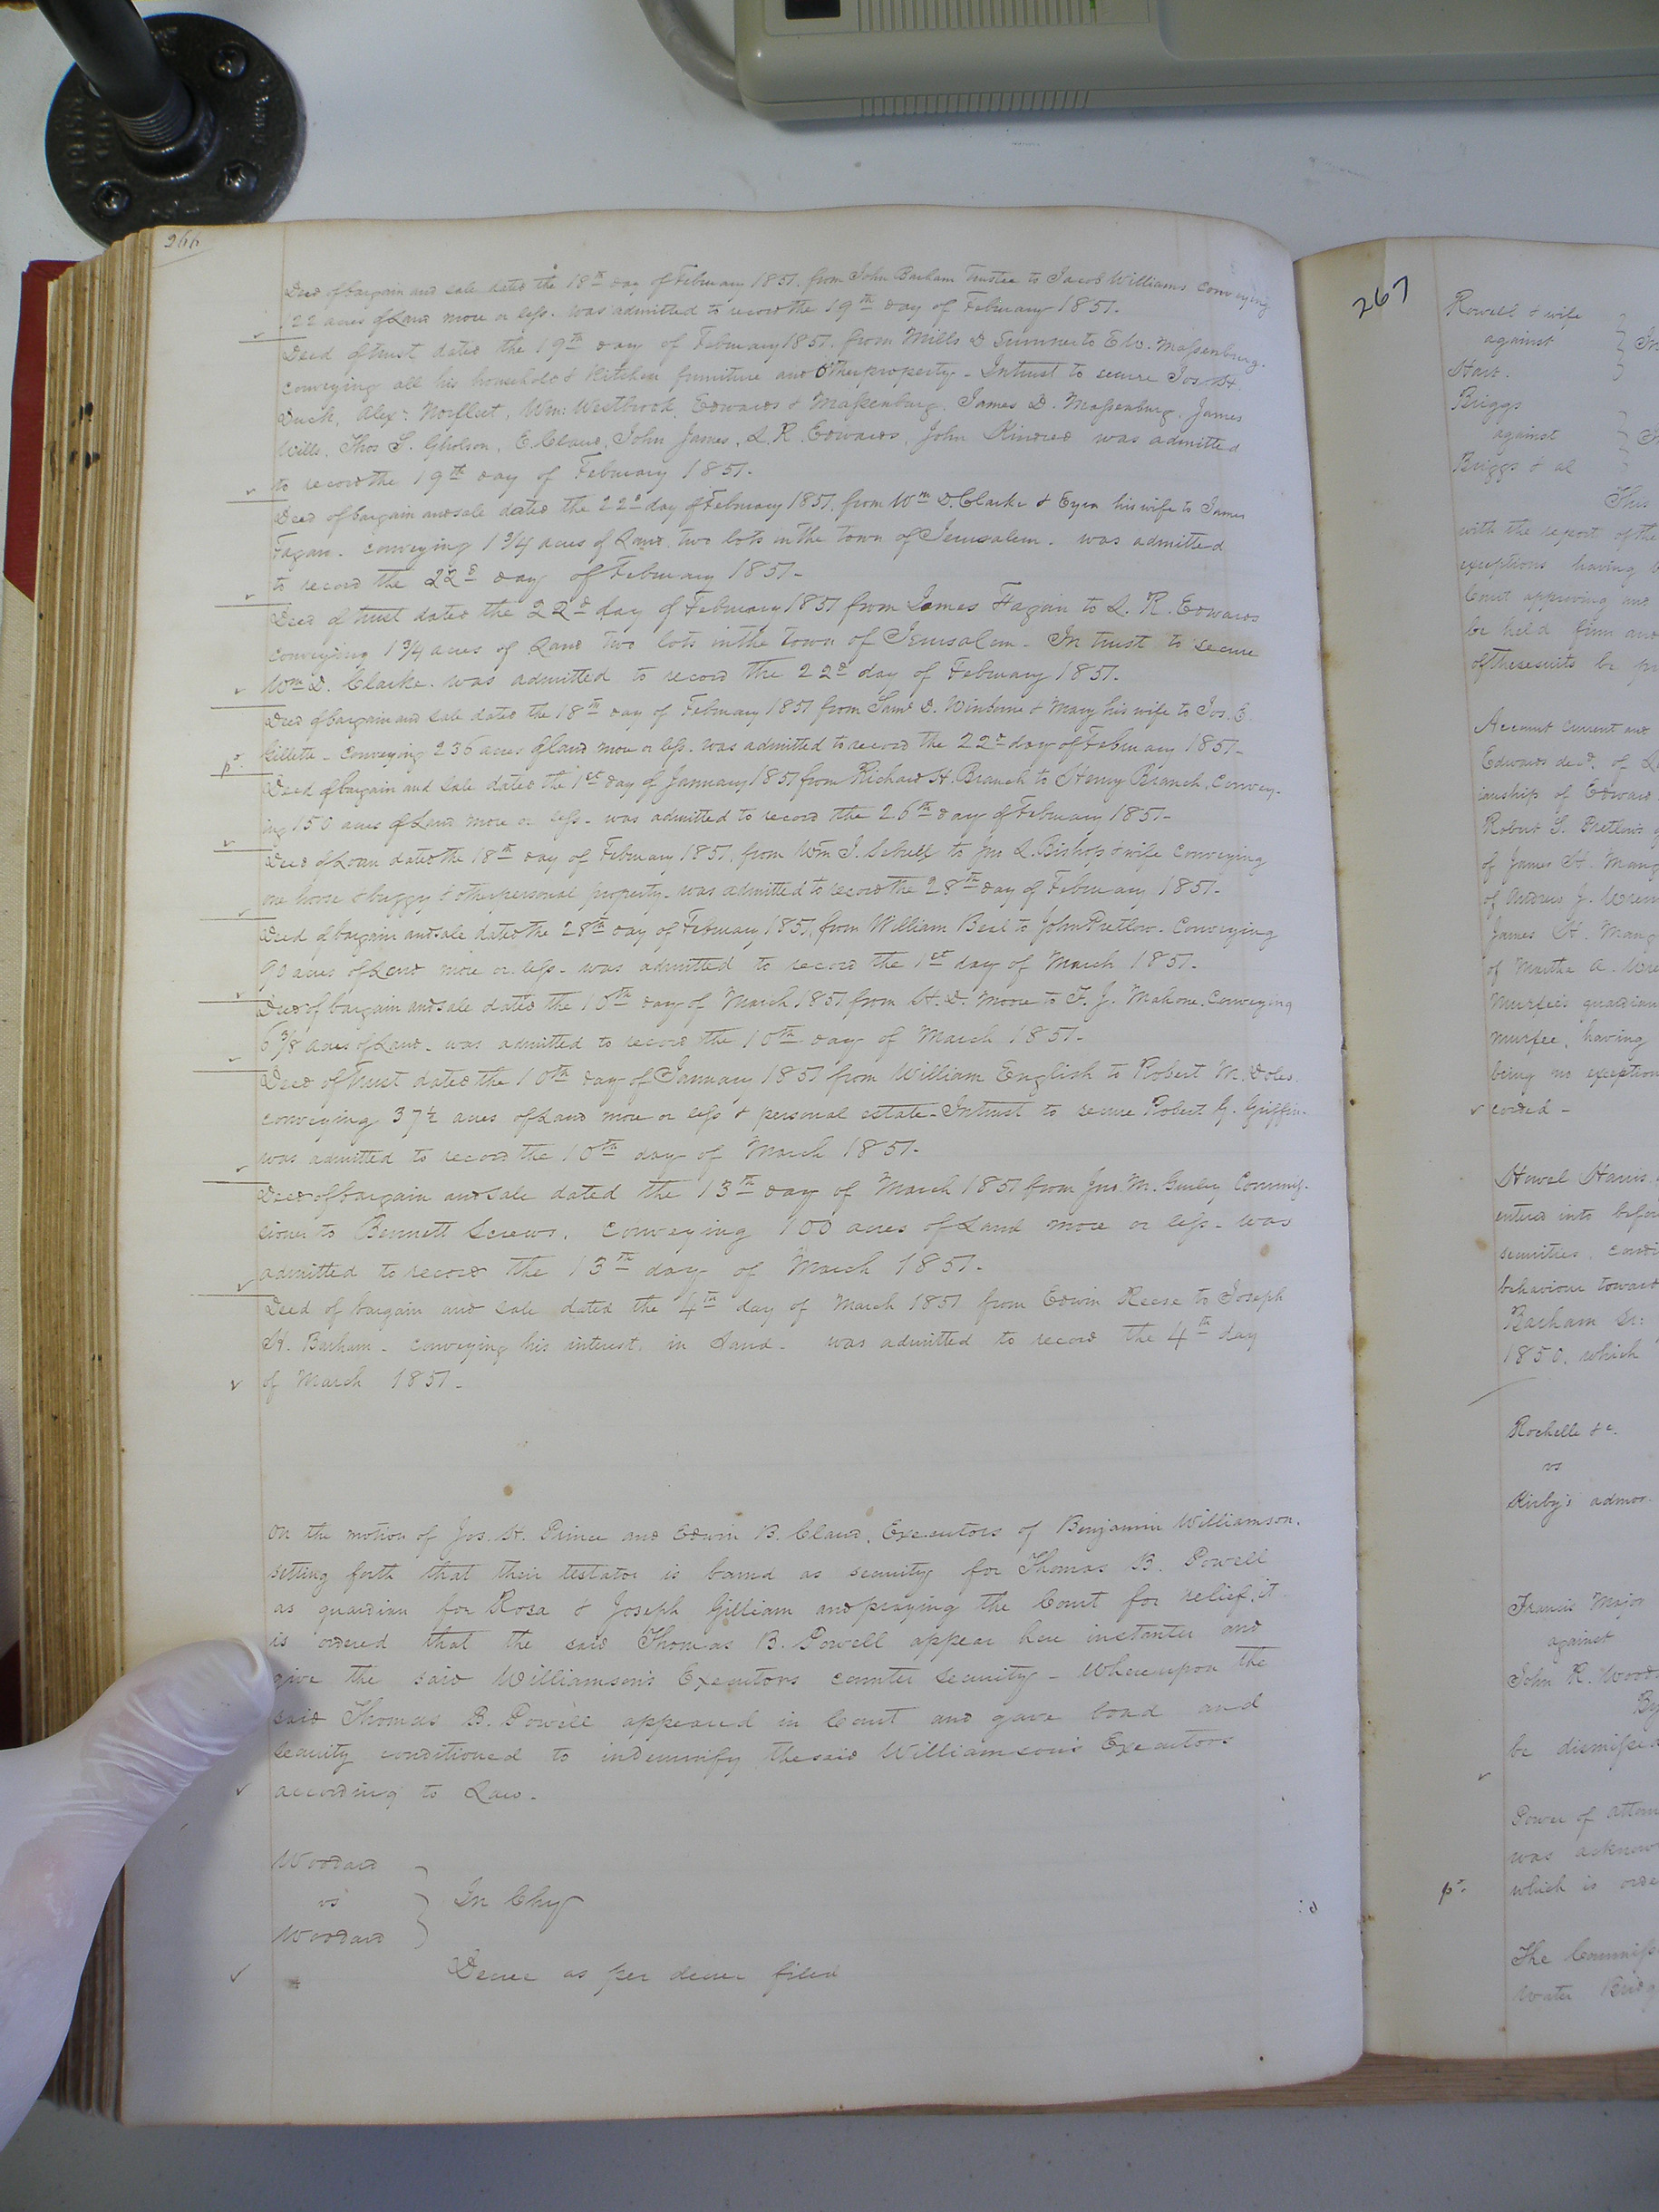 266
Deed of bargain and sale dated the 18th day of February 1851, from John Barham Trustee to Jacob Williams conveying
122 acres of Land more or less. was admitted to record the 19th day of February 1851.
Deed of trust dated the 19th day of February 1851. from Mills D Sumner to Edw. Massenburg.
conveying all his household & Kitchen furniture and other property - In trust to secure Jos. H.
Duck, Alexr Norfleet, Wm: Westbrook, Edwards & Massenburg, James D. Massenburg, James
Wills, Thos S. Gholson, E. Claud, John James, L. R. Edwards, John Kindred was admitted
to record the 19th day of February 1851.
Deed of bargain and sale dated the 22d day of February 1851, from Wm D. Clarke & his wife to James
Fagan. conveying 1 3/4 acres of Land two lots in the town of Jerusalem. was admitted
to record the 22d day of February 1851-
Deed of trust dated the 22d day of February 1851 from James Fagan to L. R. Edwards
conveying 1 3/4 acres of Land two lots in the town of Jerusalem - In trust to secure
Wm D. Clarke. was admitted to record the 22d day of February 1851.
Deed of bargain and sale dated the 18th day of February 1851 from Saml D. Winborne & Mary his wife to Jos. E.
Gillette - conveying 236 acres of Land more or less. was admitted to record the 22d day of February 1851-
Deed of bargain and sale dated the 1st day of January 1851 from Richard H. Branch to Henry Branch, convey-
ing 150 acres of Land more or less - was admitted to record the 26th day of February 1851-
Deed of Loan dated the 18th day of February 1851, from Wm J. Sebrell to Jno L. Bishop & wife conveying
one horse & buggy & other personal property - was admitted to record the 28th day of February 1851-
Deed of bargain and sale dated the 28th day of February 1851, from William Beal to John Pretlow - Conveying
90 acres of Land more or less - was admitted to record the 1st day of March 1851.
Deed of bargain and sale dated the 10th day of March 1851 from H. D. Moore to F. J. Mahone, Conveying
6 3/8 acres of Land - was admitted to record the 10th day of March 1851-
Deed of trust dated the 10th day of January 1851 from William English to Robert M. Doles
conveying 37 1/2 acres of Land more or less & personal estate - In trust to secure Robert G. Griffin.
was admitted to record the 10th day of March 1851.
Deed of bargain and sale dated the 13th day of March 1851 from Jno. M. Gurley Commis-
sioner to Bennett Screws. conveying 100 acres of Land more or less - was
admitted to record the 13th day of March 1851.
Deed of bargain and sale dated the 4th day of March 1851 from Edwin Reese to Joseph
H. Barham - conveying his interest in Land - was admitted to record the 4th day
of March 1851-
On the motion of Jos. H. Prince and Edwin B. Claud, Executors of Benjamin Williamson.
setting forth that their testator is bound as security for Thomas B. Powell
as guardian for Rosa & Joseph Gilliam and praying the Court for relief, it
is ordered that the said Thomas B. Powell appear here instanter and
give the said Williamson's Executors counter security - Whereupon the
said Thomas B. Powell appeared in Court and gave bond and
security conditioned to indemnify the said Williamson's Executors
according to Law -
Woodard
vs
Woodard
In Chy
Decree as per decree filed
267
Rowell & wife
against
Hart.
Briggs
against
Briggs & al
This
with the report of the
exceptions having b
Court approving and
be held firm and
of these suits be
Account Current and
Edwards decd. of
ianship of Edward
Robert S. Pretlow's
of James H. Mang
of Andrew J.
James H. Mang
of Martha A.
Murfee's guardian
Murfee, having
being no exception
corded -
Howel Harris
entered into befor
securities, condi
behaviour toward
Barham Sr:
1850, which
Rochelle &c.
vs
Kirby's admor.
Francis Major
against
John R. Wood
By
be dismissed
Power of attorn
was acknow
which is orde
The Commiss
Water Bridg